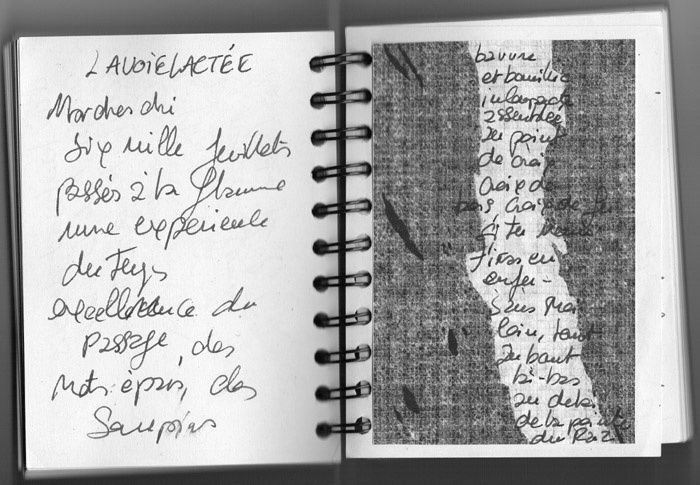 LAVOIELACTÉE
Marcheschi
Six mille feuillets
passés à la flamme
une expérience
du Temps
excellence du
passage, des
mots épars, des
Soupirs
bavure
et bouillie
assemblée
au point
de croix
croix de
bois croix de fer
si tu mens
tiras en
enfer -
Sans Mai
loin, tout
au bout
là-bas
au delà
de la pointe
du Raz